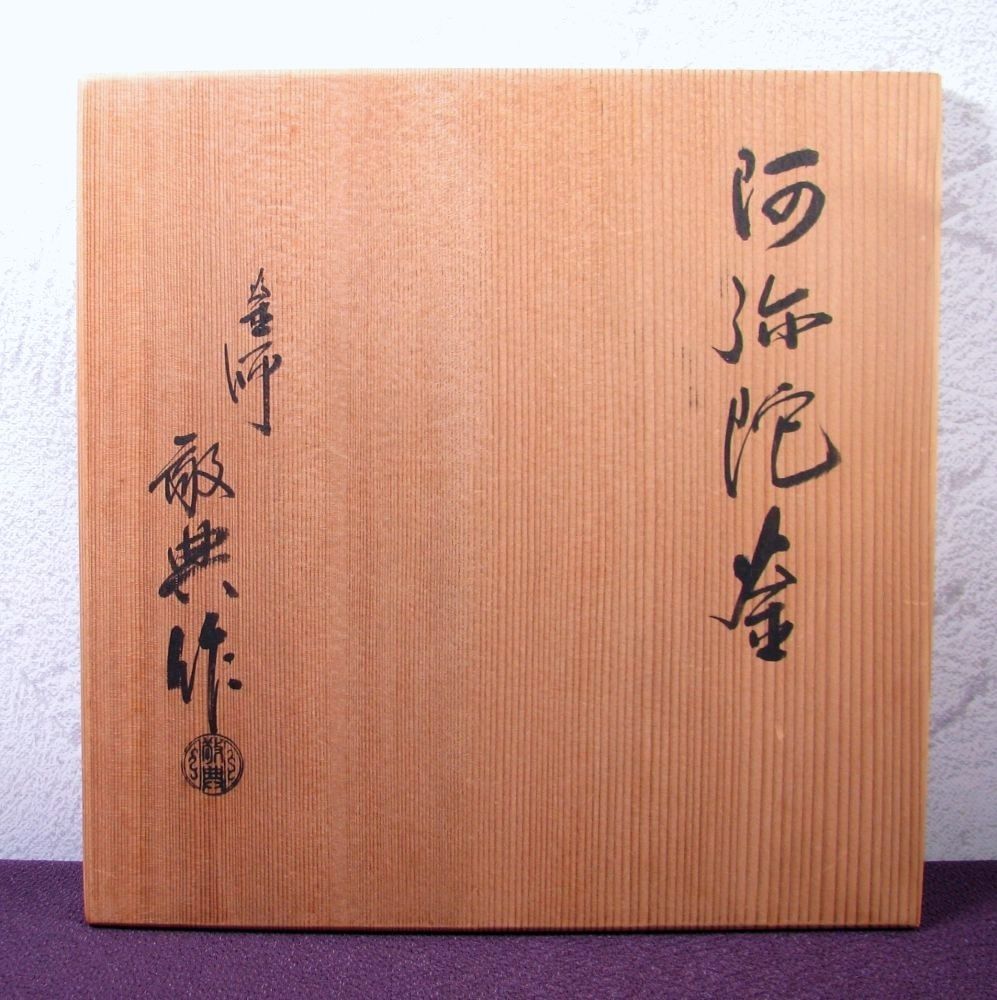 阿弥陀釜
釜師
敬典作
敬典